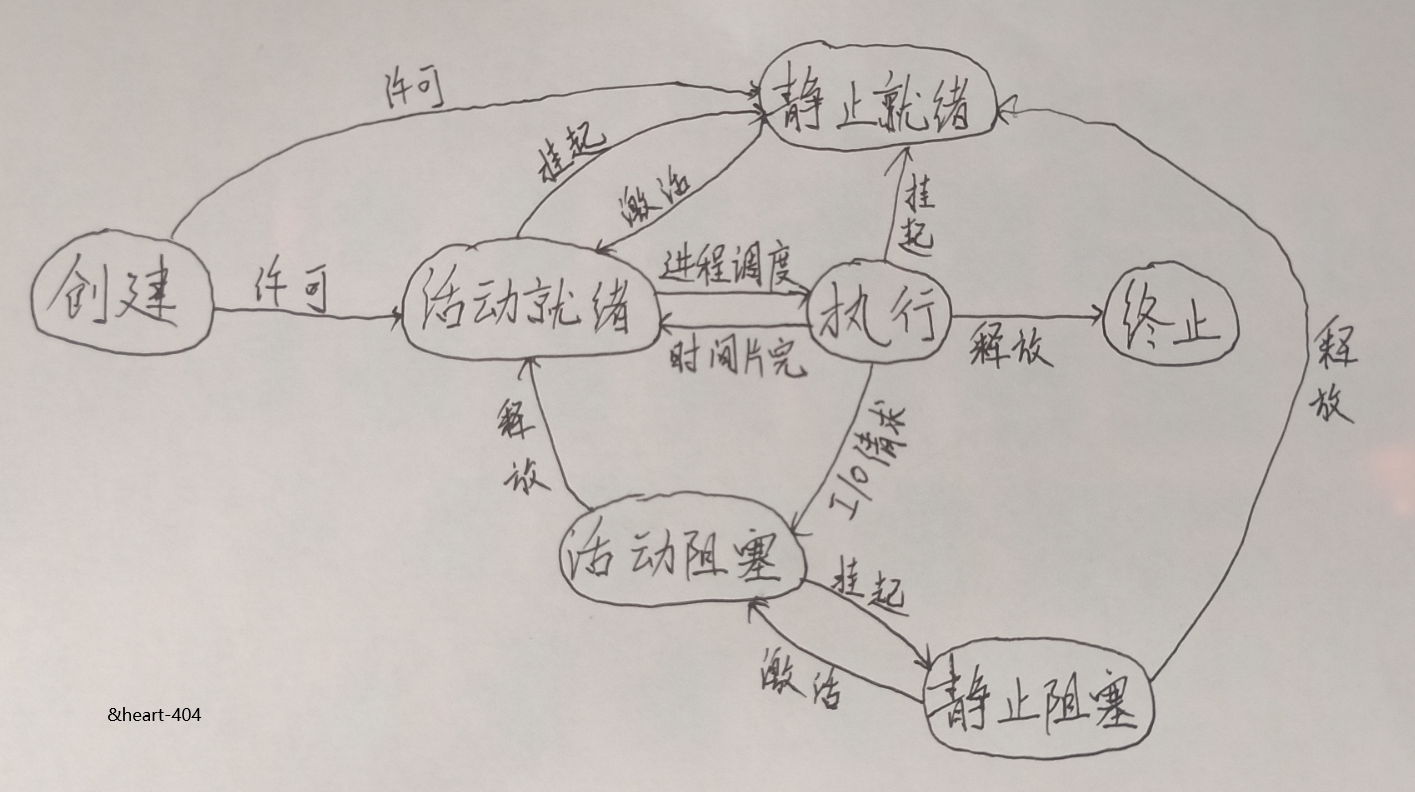 许可
静止就绪
挂起
激活
挂起
创建
许可
活动就绪
进程调度
时间片完
执行
释放
终止
释放
释放
I/O请求
活动阻塞
挂起
激活
静止阻塞
&heart-404